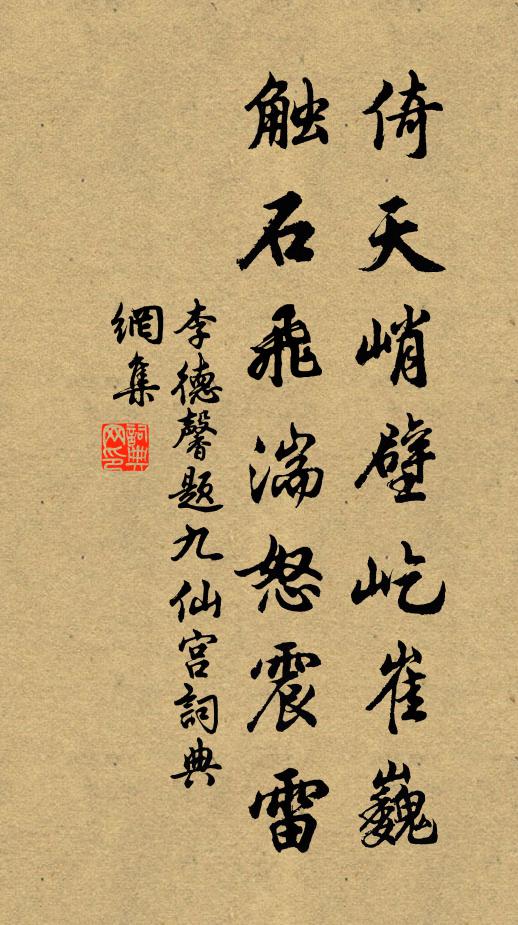 倚天峭壁屹崔巍
触石飛湍怒震雷
李德馨题九仙宫詞典
網集
詞典网印